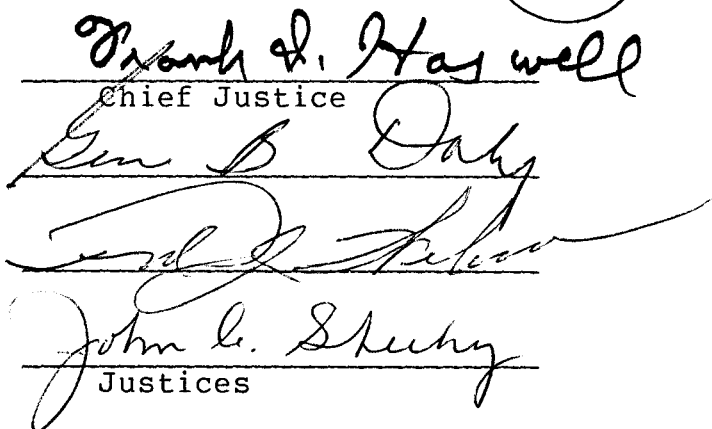 Frank I. Haswell
Chief Justice
Gene B Daly
John C. Sheehy
Justices